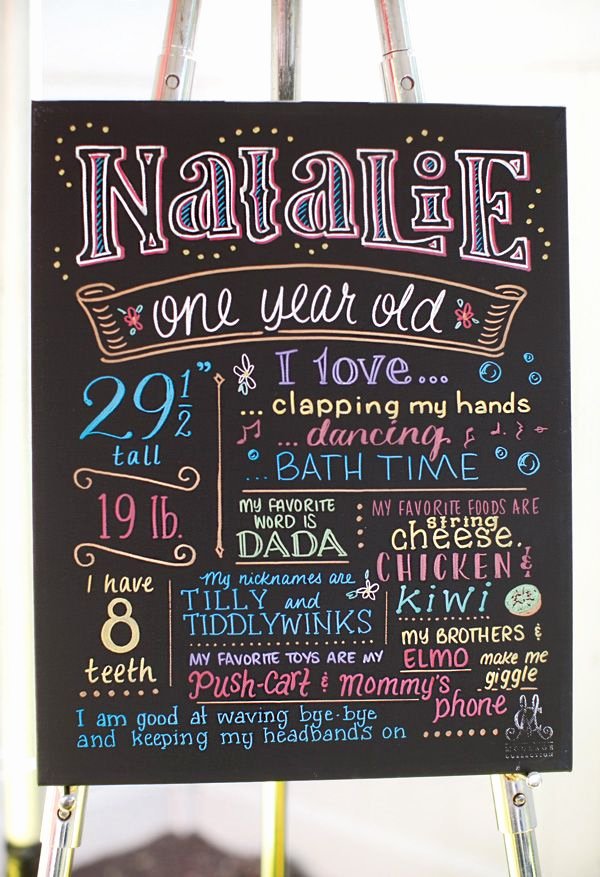 Natalie
one year old
29 1/2"
tall
19 lb.
I have
8
teeth
I love...
... clapping my hands
... dancing
... BATH TIME
MY FAVORITE
WORD IS
DADA
MY FAVORITE FOODS ARE
string
cheese,
CHICKEN &
KIWI
My nicknames are
TILLY and
TIDDLYWINKS
MY BROTHERS &
ELMO make me
giggle
MY FAVORITE TOYS ARE MY
PUSH-CART & MOMMY'S
phone
I am good at waving bye-bye
and keeping my headbands on